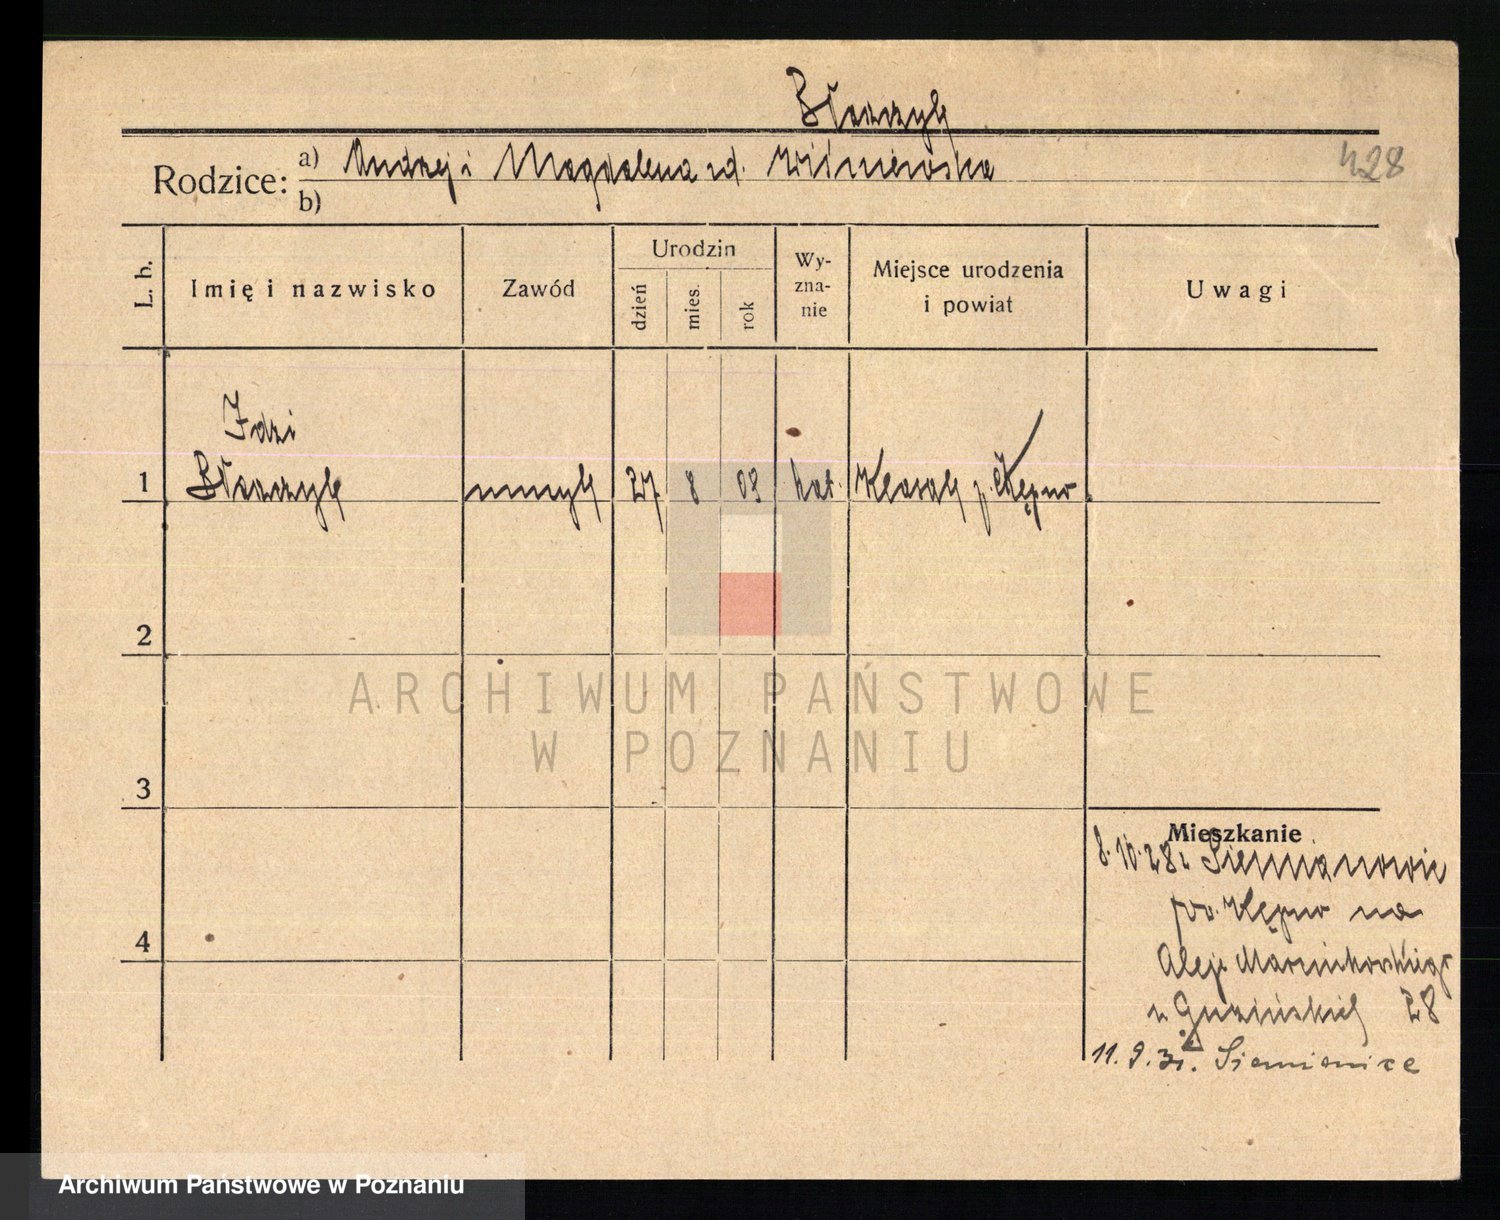 Błaszyk
428
Rodzice: a) Andrzej i Magdalena zd. Wiśniewska
b)
L. b.
Imię i nazwisko
Zawód
Urodzin
dzień
mies.
rok
Wy-
zna-
nie
Miejsce urodzenia
i powiat
Uwagi
Idzi
1 Błaszyk muzyk 27 8 09 kat. p. Kępno
2
3
4
Mieszkanie
8.10.28 z
pow. Kępno na
Aleje Marcinkowskiego
u 28
11.9.31. Siemianice
ARCHIWUM PAŃSTWOWE
W POZNANIU
Archiwum Państwowe w Poznaniu